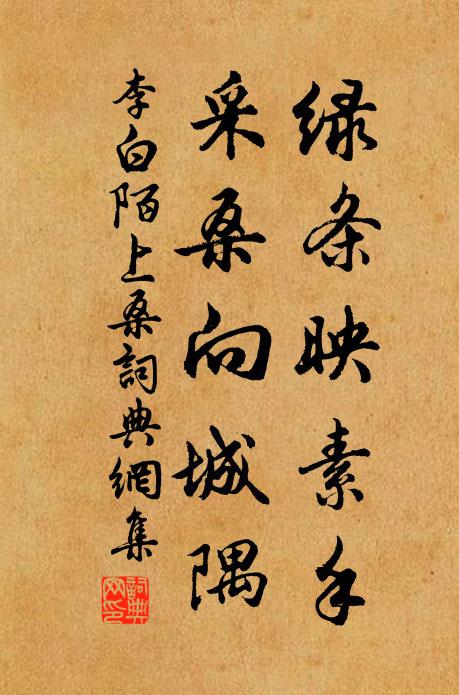 绿条映素手
采桑向城隅
李白陌上桑詞典網集
詞典
网印